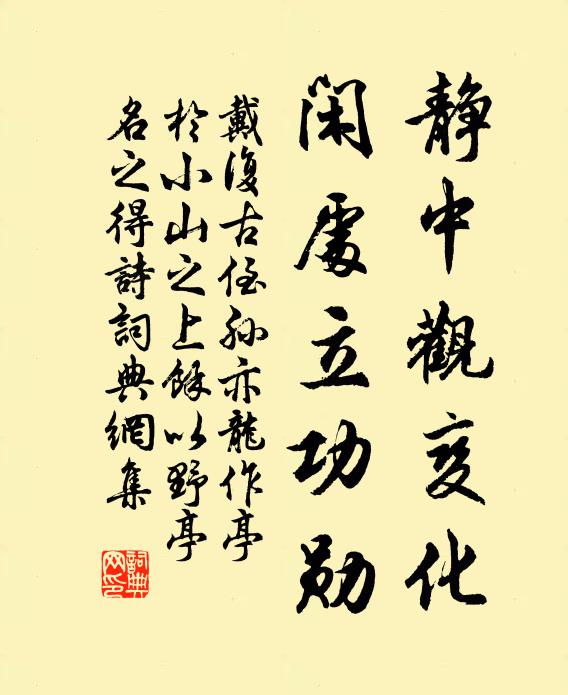 静中觀变化
闲處立功勋
戴復古侄孙亦龍作亭
於小山之上餘以野亭
名之得詩詞典網集
詞典
网印